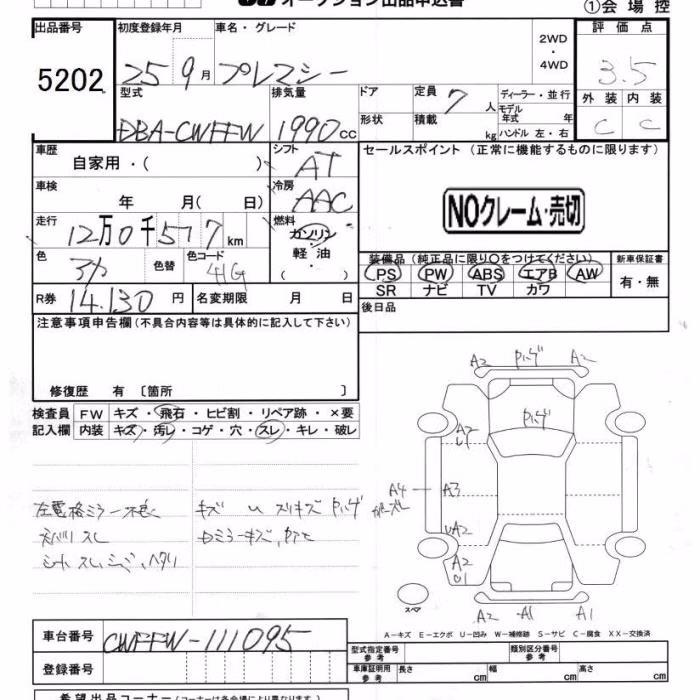 オークション出品申込書
①会場控
出品番号 初度登録年月 車名・グレード 2WD・4WD 評価点
5202 25 9月 プレマシー 3.5
型式 排気量 ドア 定員 7人 ディーラー・並行 外装 内装
DBA-CWFFW 1990cc 形状 積載 kg モデル年式 年 ハンドル 左・右 C C
車歴 自家用・( ) シフト AT セールスポイント (正常に機能するものに限ります)
車検 年 月( 日) 冷房 AAC
NOクレーム・売切
走行 12万0千577km 燃料 ガソリン 軽油・( )
装備品 (純正品に限り○をつけてください) 新車保証書
色 色替 色コード 41G PS PW ABS エアB AW 有・無
SR ナビ TV カワ
R券 14,130円 名変期限 月 日 後日品
注意事項申告欄 (不具合内容等は具体的に記入して下さい)
修復歴 有 〔箇所 〕
検査員記入欄 FW キズ・飛石・ヒビ割・リペア跡・×要
内装 キズ・汚レ・コゲ・穴・スレ・キレ・破レ
A2 A2
A4 A3
A2
A2 A1 A1
スペア
A-キズ E-エクボ U-凹み W-補修跡 S-サビ C-腐食 XX-交換済
車台番号 CWFFW-111095
登録番号
型式指定番号 参考 類別区分番号 参考
車庫証明用 参考 長さ cm 幅 cm 高さ cm
希望出品コーナー